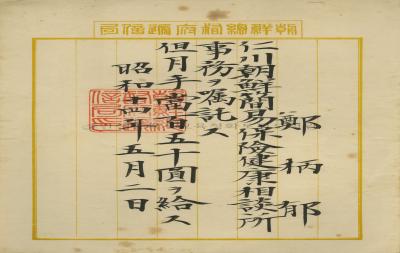 朝鮮總督府遞信局
鄭柄郁
仁川朝鮮簡易保険健康相談所
事務ヲ嘱託ス
但月手當百五十圓ヲ給ス
昭和十四年五月二日